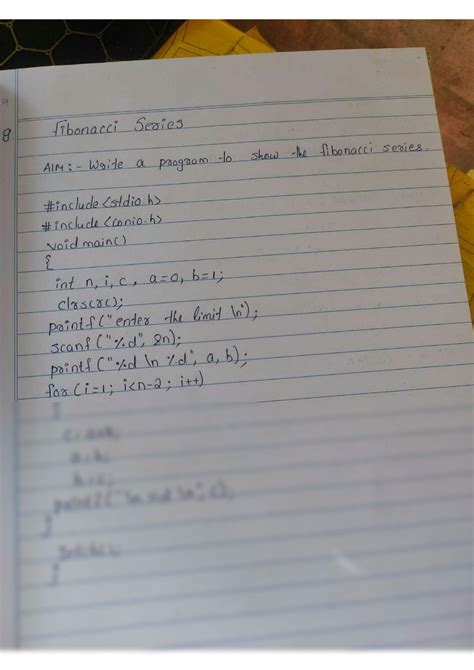 8 Fibonacci Series
AIM:- Write a program to show the fibonacci series.
#include <stdio.h>
#include <conio.h>
void main()
{
int n, i, c, a=0, b=1;
clrscr();
printf("enter the limit \n");
scanf("%d", &n);
printf("%d \n %d", a, b);
for (i=1; i<n-2; i++)
}
}